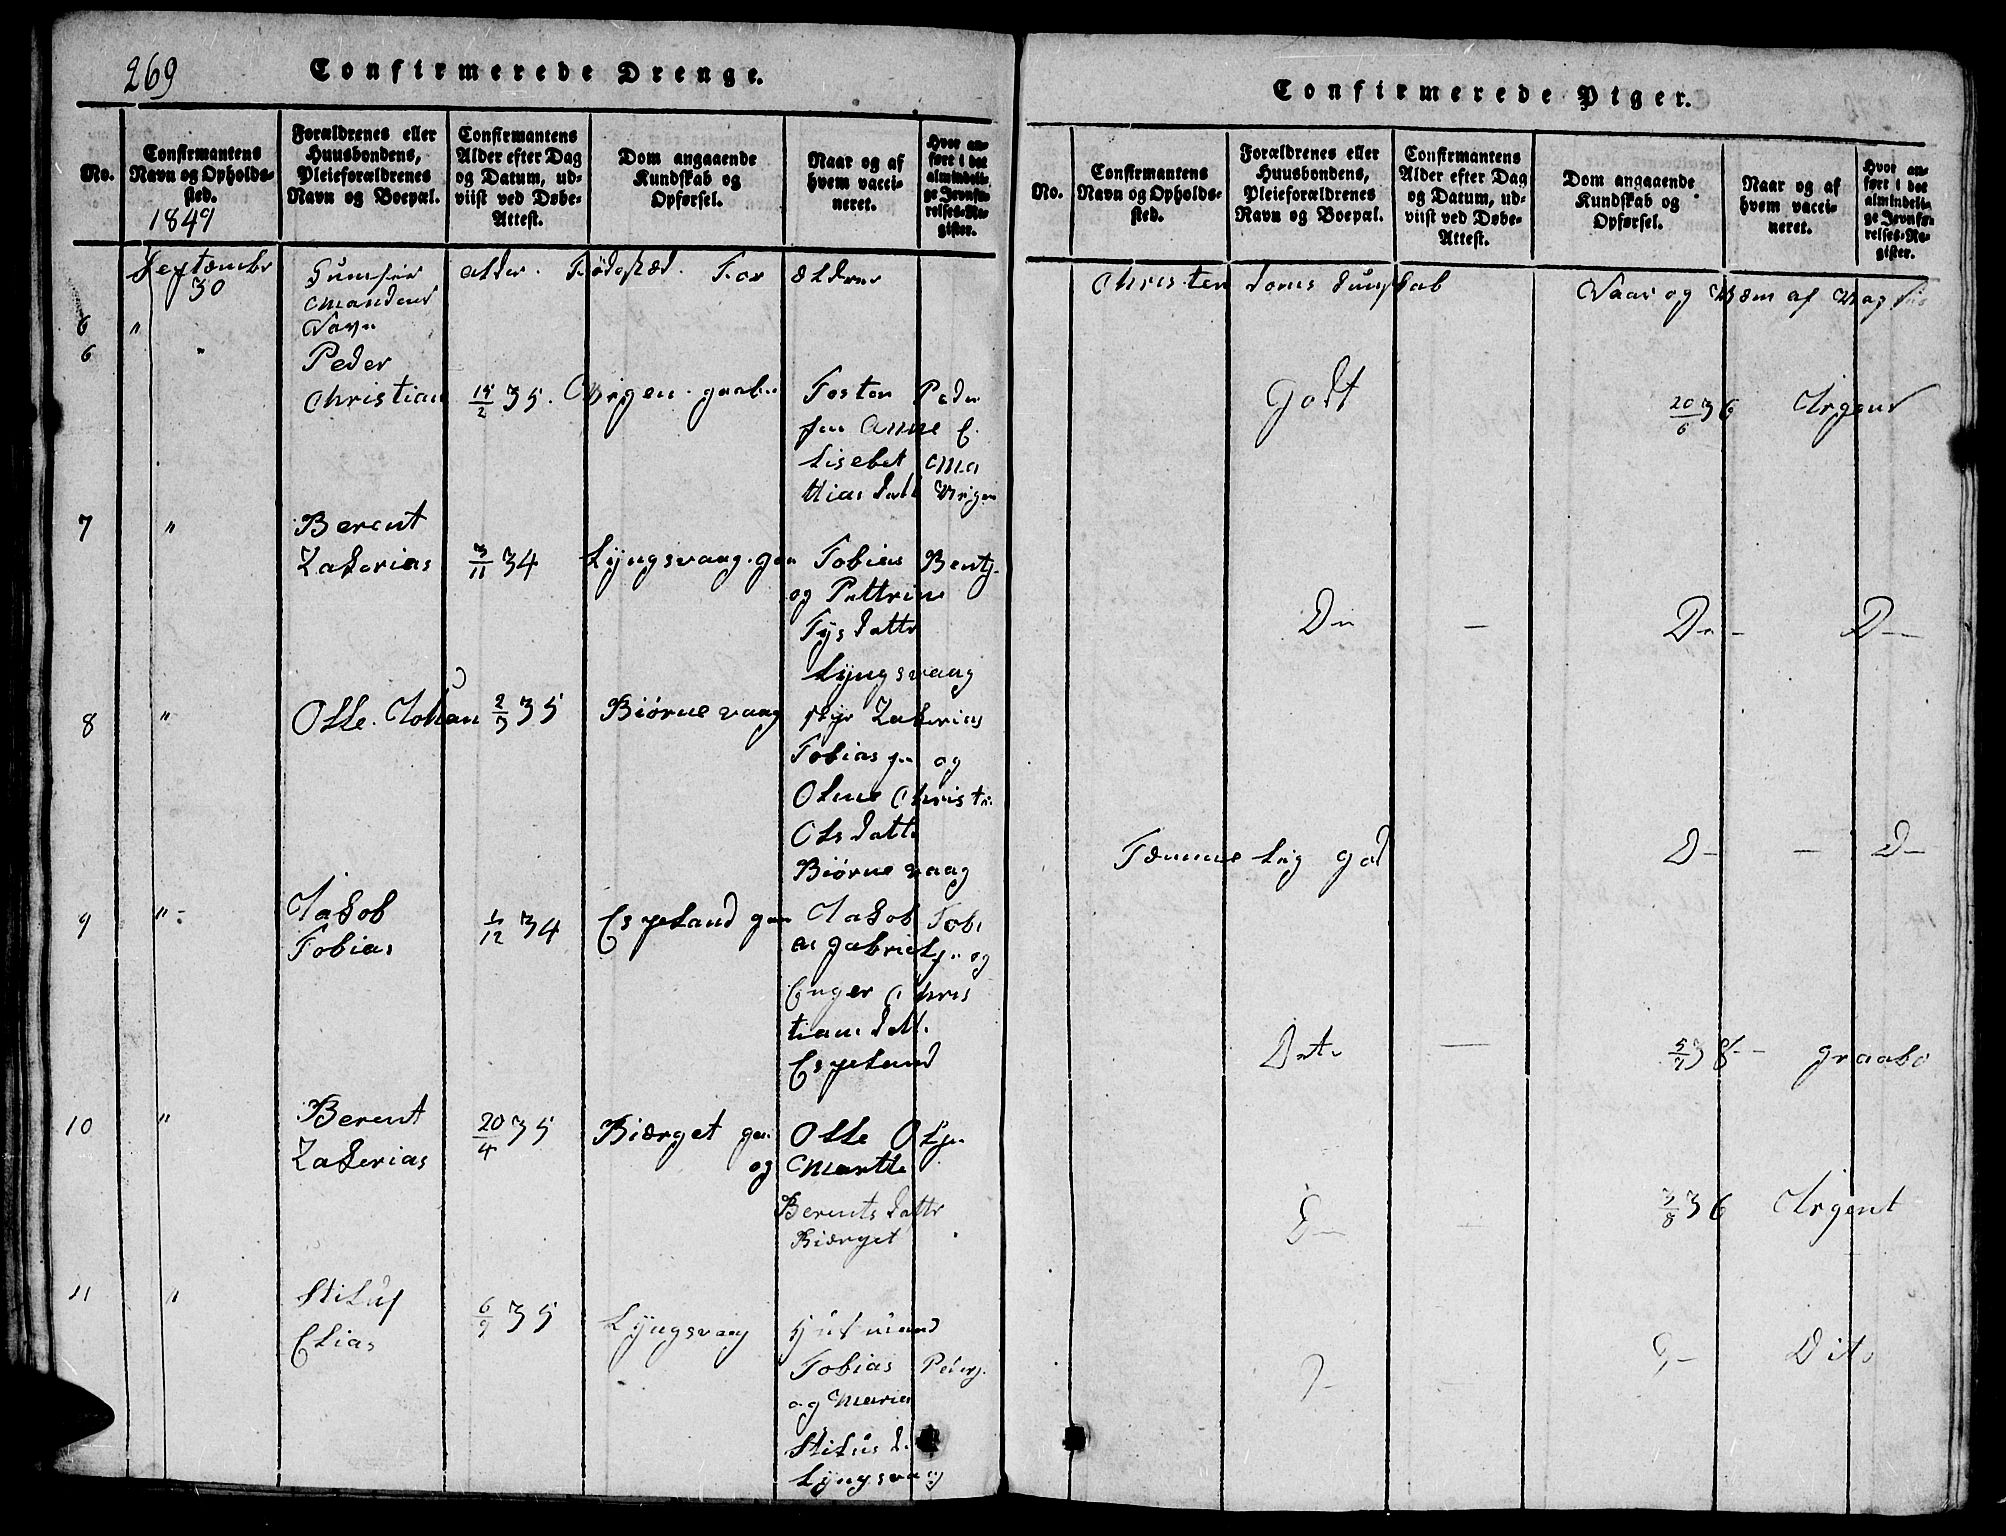 269
Confirmerede Drenge.
No.
Confirmantens
Navn og Opholds-
sted.
1849
Forældrenes eller
Huusbondens,
Pleieforældrenes
Navn og Boepæl.
Confirmantens
Alder efter Dag
og Datum, ud-
viist ved Døbe-
Attest.
Dom angaaende
Kundskab og
Opførsel.
Naar og af
hvem vacci-
neret.
Hvor an-
ført i det
almindeli-
ge Jevnfø-
relses-Re-
gister.
September
30
Jumfrir alder. Fødested. Forældrene
Mandens
Navn
6 "
6 " Peder
Christian 15/2 35.
Tosten Peder
Anne E
Lisebet Ma
thias datt
7 " Berent
Zakerias 3/11 34 Lyngsvaag. gaa Tobias Bentj.
og Pettrine
Tysdattr
Lyngsvaag
8 " Olle. Johan 2/3 35 Biørnevaag Zakerias
Tobias og
Oline Christi
Olsdattr
Biørnevaag
9 " Jakob
Tobias 1/12 34 Espeland gaa Jakob Tobi
as gabriel og
Enger Chris
tians datt.
Espeland
10 " Berent
Zakerias 20/4 35 Biærget gaa Olle
og Marthe
Berents dattr
Biærget
11 " Stiluf
Elias 6/9 35 Lyngsvaag Husmand
Tobias Peders.
og Maria
Stilus d.
Lyngsvaag
Confirmerede Piger.
No.
Confirmantens
Navn og Opholds-
sted.
Forældrenes eller
Huusbondens,
Pleieforældrenes
Navn og Boepæl.
Confirmantens
Alder efter Dag
og Datum, ud-
viist ved Døbe-
Attest.
Dom angaaende
Kundskab og
Opførsel.
Naar og af
hvem vacci-
neret.
Hvor an-
ført i det
almindeli-
ge Jevnfø-
relses-Re-
gister.
Christendoms Naar og Wem af
Godt 20/6 36 Argent
Do — Do - D-
Temmelig god D- - D-
Dito — 5/7 38 - graabo
D- 3/8 36 Argent
D- Dito